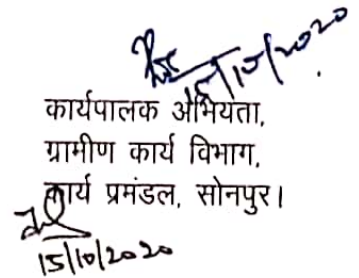 15/10/2020
कार्यपालक अभियंता,
ग्रामीण कार्य विभाग,
कार्य प्रमंडल, सोनपुर।
15/10/2020